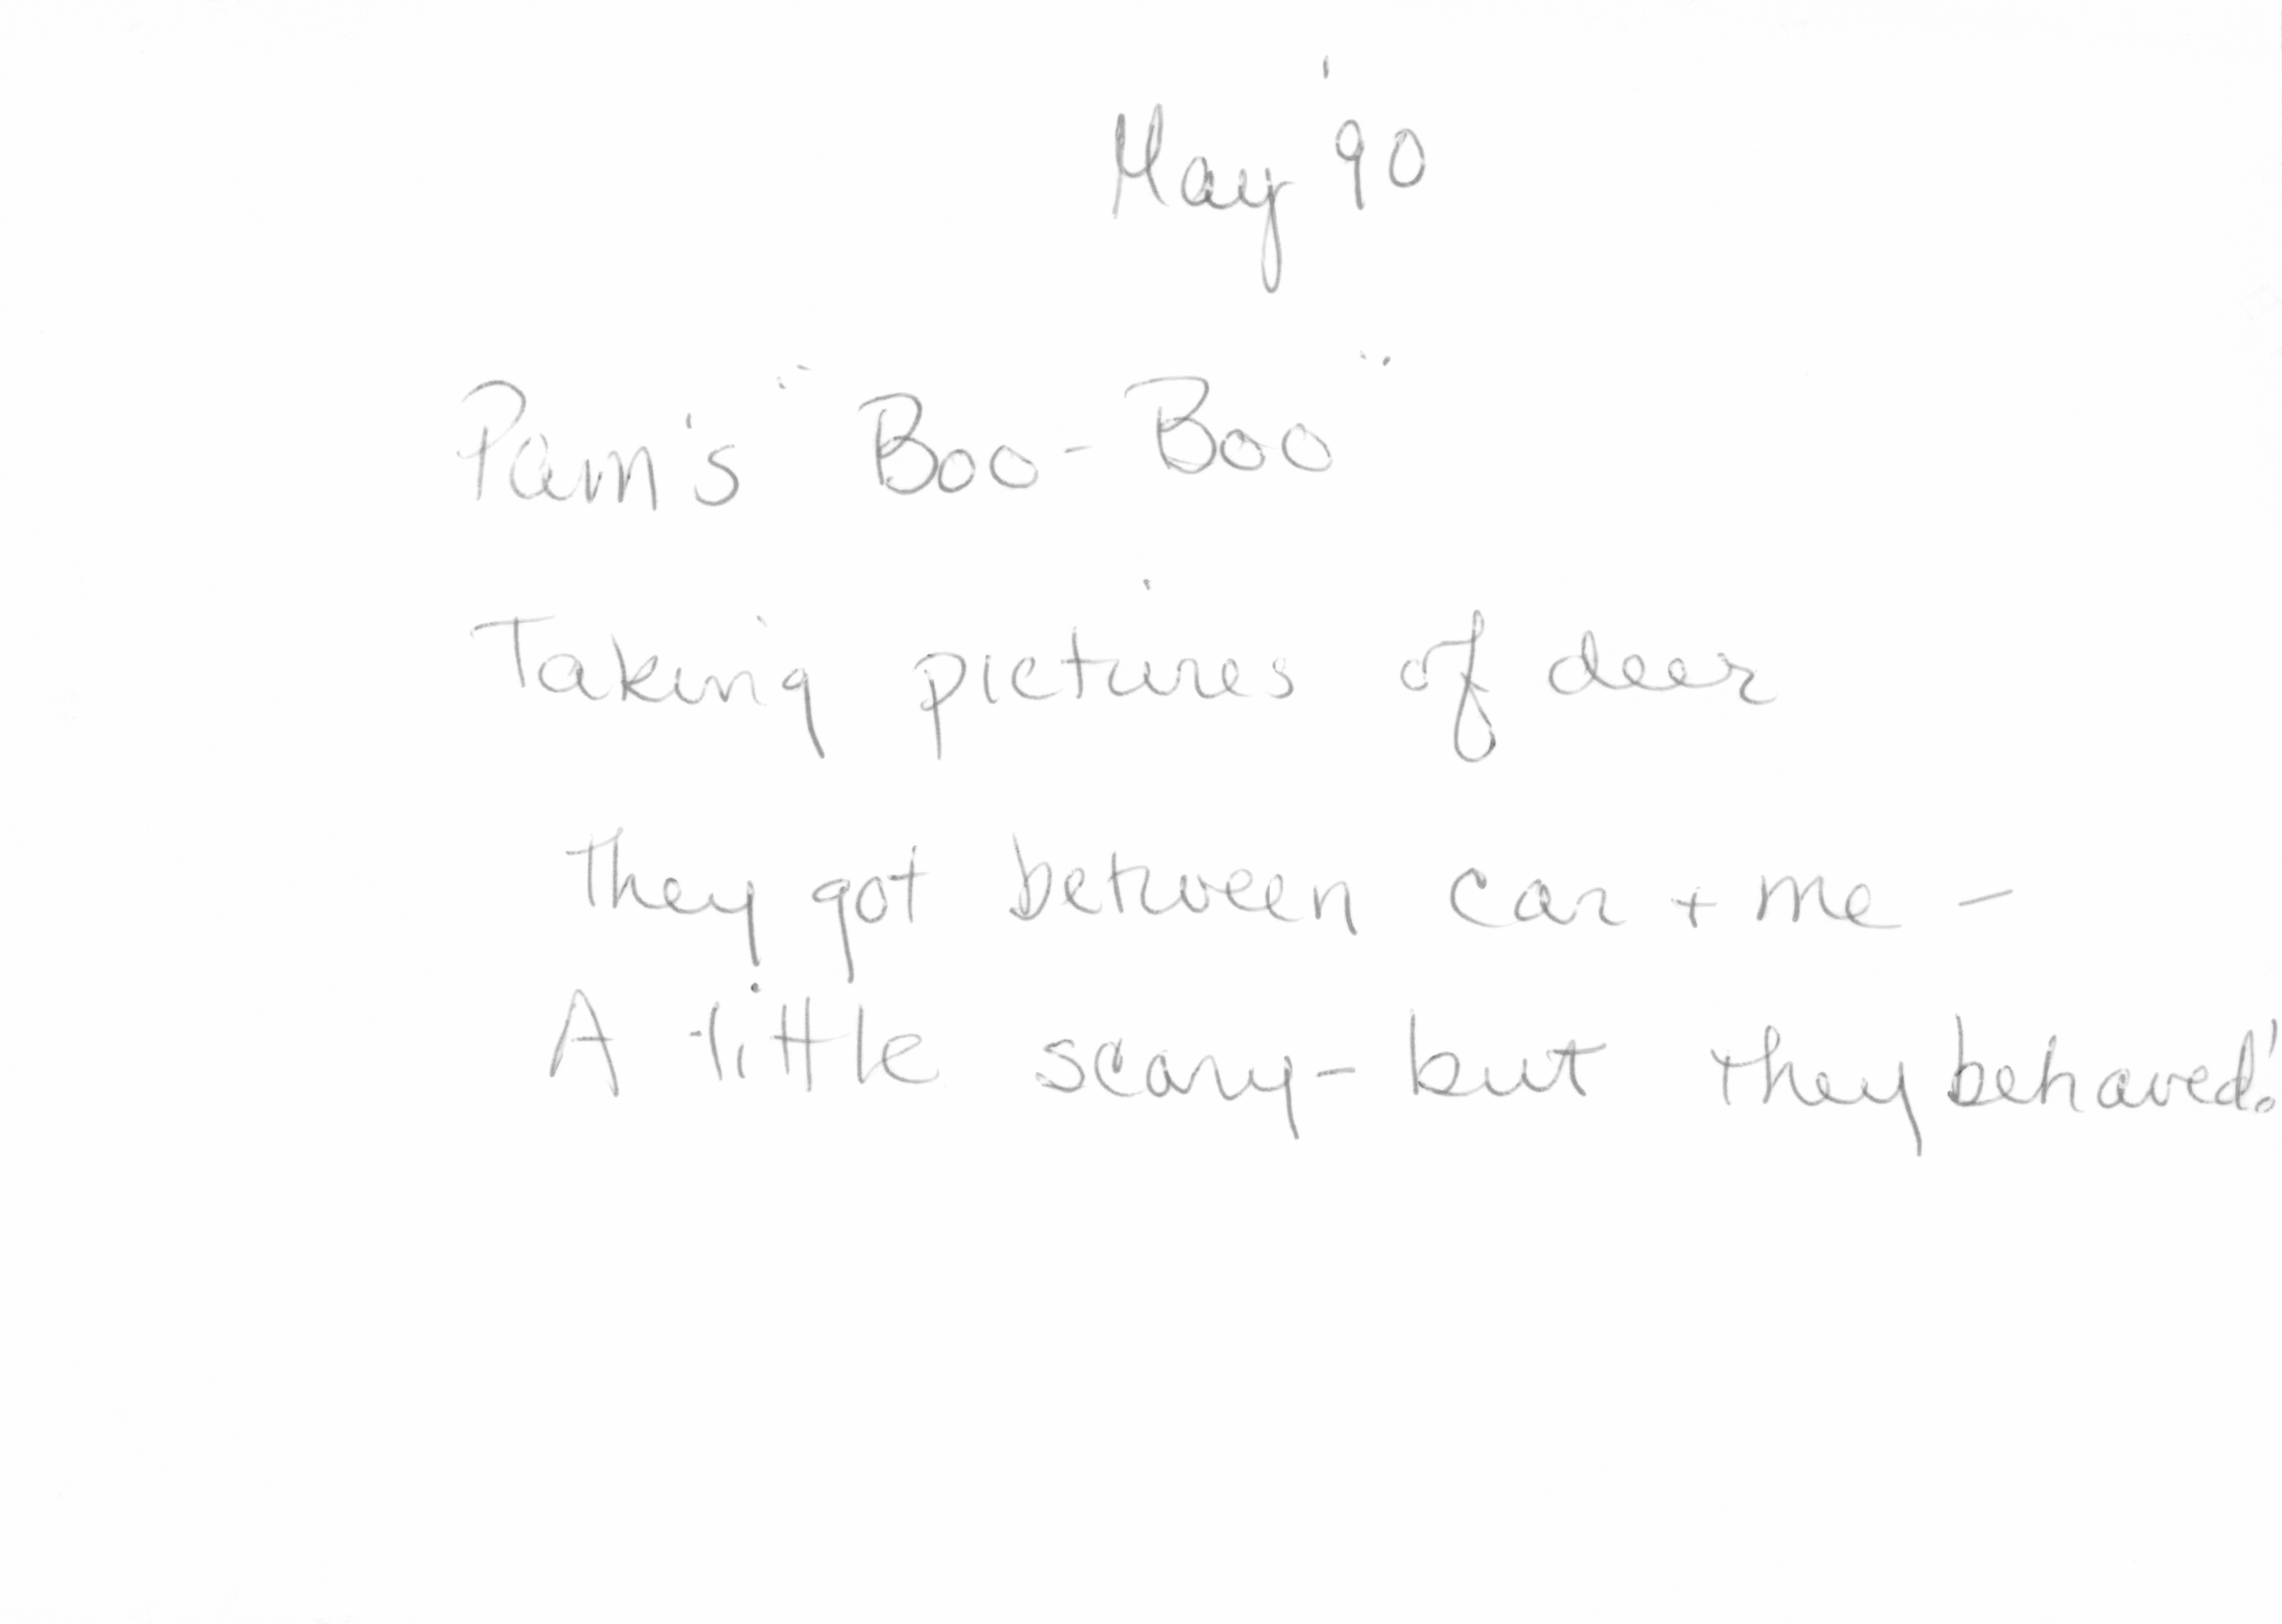 May '90
Pam's "Boo-Boo"
Taking pictures of deer
they got between car + me -
A little scary - but they behaved!